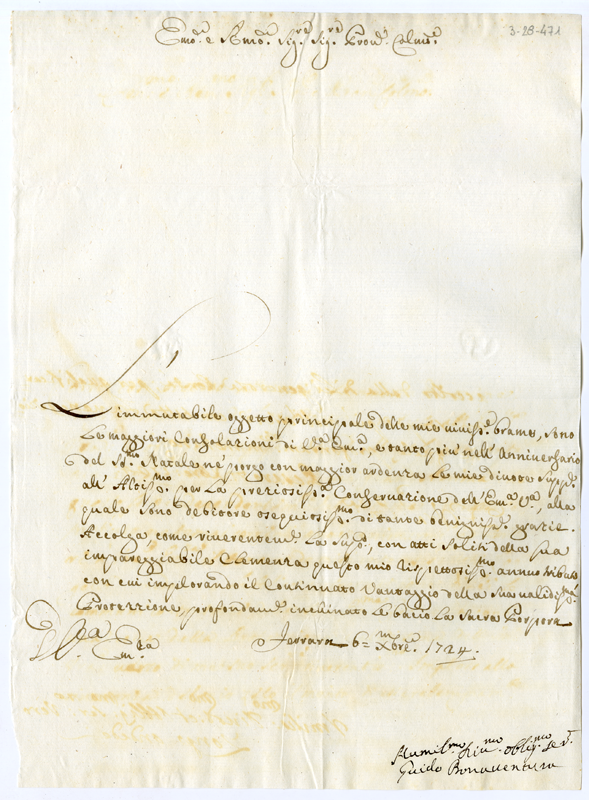 3-28-471
Emo.e e Rmo.e Sig.re Sig.re Pron.e Colmo.e
L'immutabile oggetto principale delle mie viviss.e brame, sono
le maggiori Consolazioni di V.a Em.a, e tanto più nell'Anniversario
del SS.mo Natale ne porgo con maggior ardenza le mie divote supp.e
all'Altiss.mo per la preziosiss.a Conservazione dell'Em.a V.a, alla
quale sono debitore ossequiosiss.mo di tante benigniss.e grazie.
Accolga, come riverentem.e La Sup.o, con atti soliti della sua
impareggiabile Clemenza questo mio rispettosiss.mo annuo tributo
con cui implorando il Continuato Vantaggio della Sua validiss.ma
Protezzione, profondam.e inchinato le bacio La Sacra Porpora
Di V.a Em.za
Ferrara 6= Xbre.m 1724.
Humilmo Divmo obligmo Ser.e
Guido Bonaventura